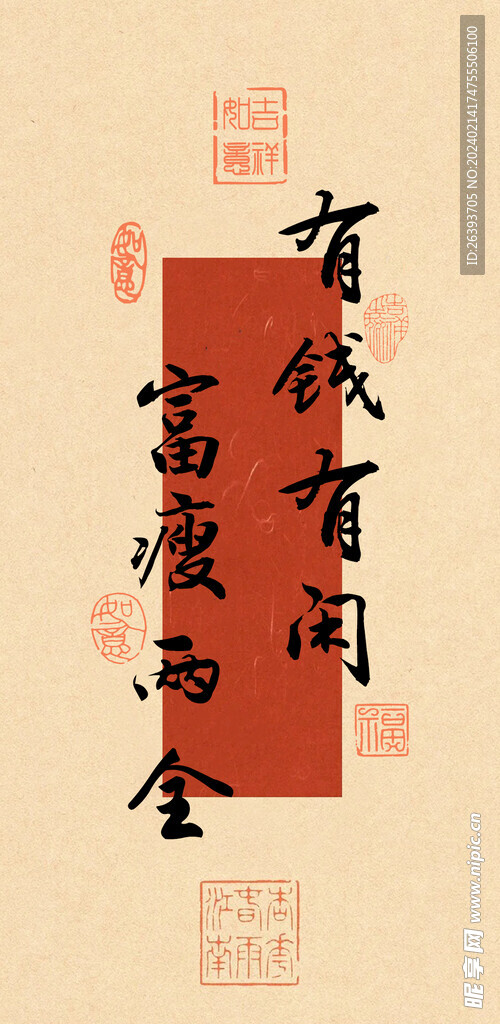 吉祥
如意
有钱有闲
富瘦两全
如意
吉祥
如意
福
杏花
春雨
江南
ID:26393705 NO:20240214174755506100
昵享网 www.nipic.cn